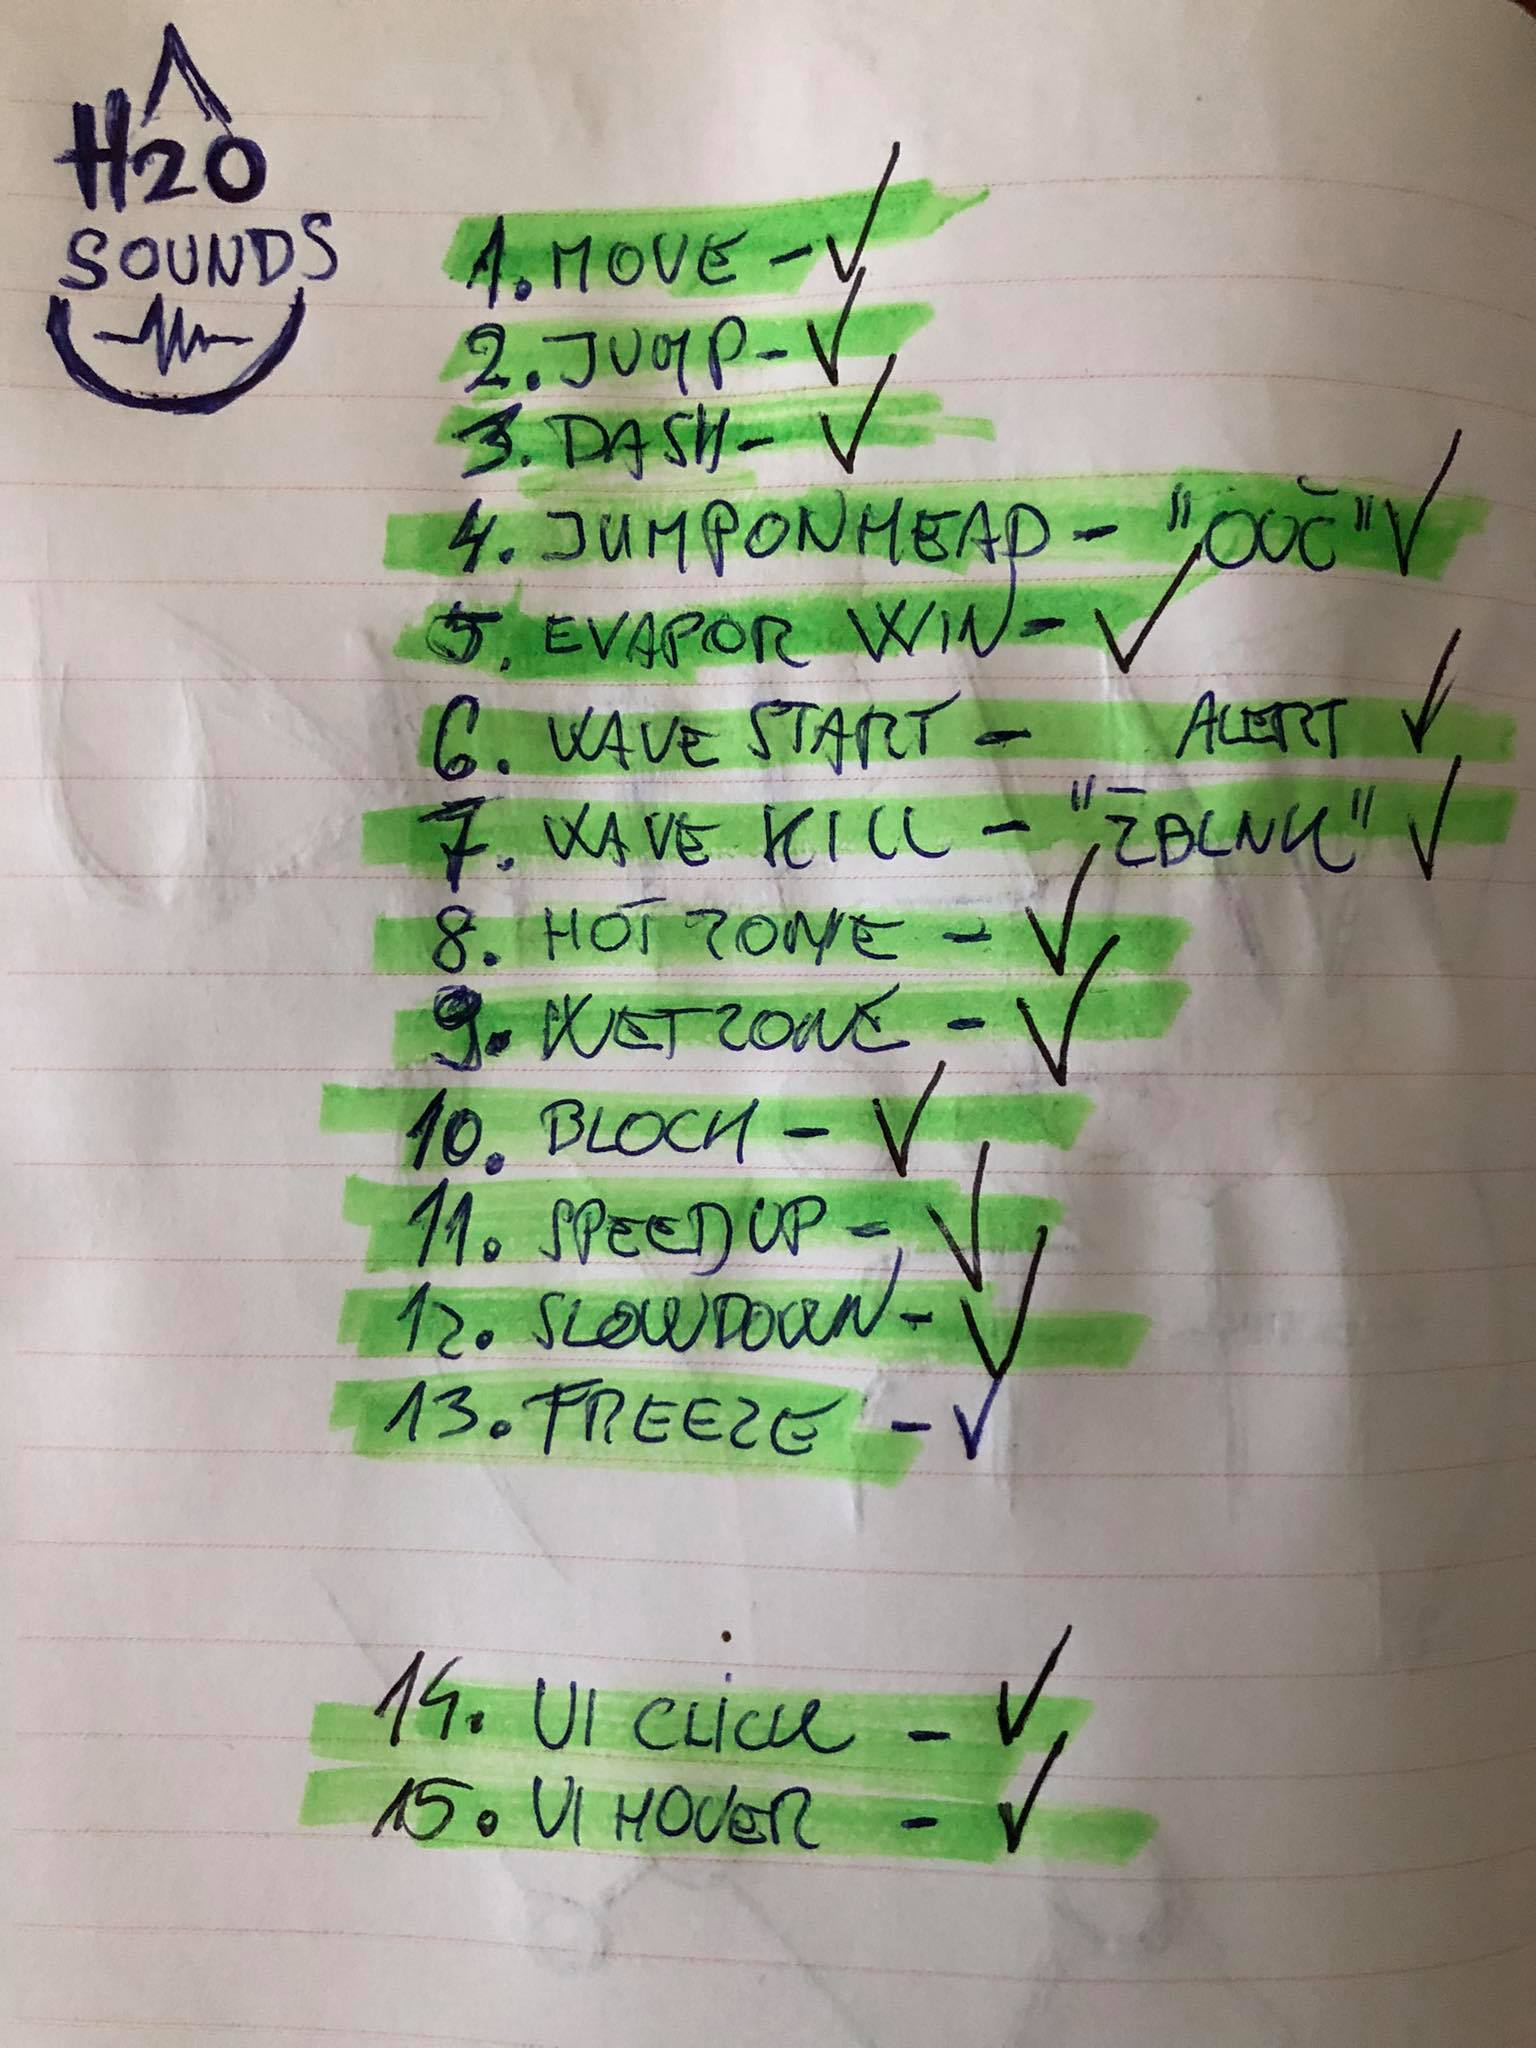 H2O
SOUNDS
1. MOVE - ✓
2. JUMP - ✓
3. DASH - ✓
4. JUMP ON HEAD - "OUČ" ✓
5. EVAPOR WIN - ✓
6. WAVE START - ALERT ✓
7. WAVE KILL - "ŽBLNK" ✓
8. HOT ZONE - ✓
9. WET ZONE - ✓
10. BLOCK - ✓
11. SPEED UP - ✓
12. SLOWDOWN - ✓
13. FREEZE - ✓
14. UI CLICK - ✓
15. UI HOVER - ✓